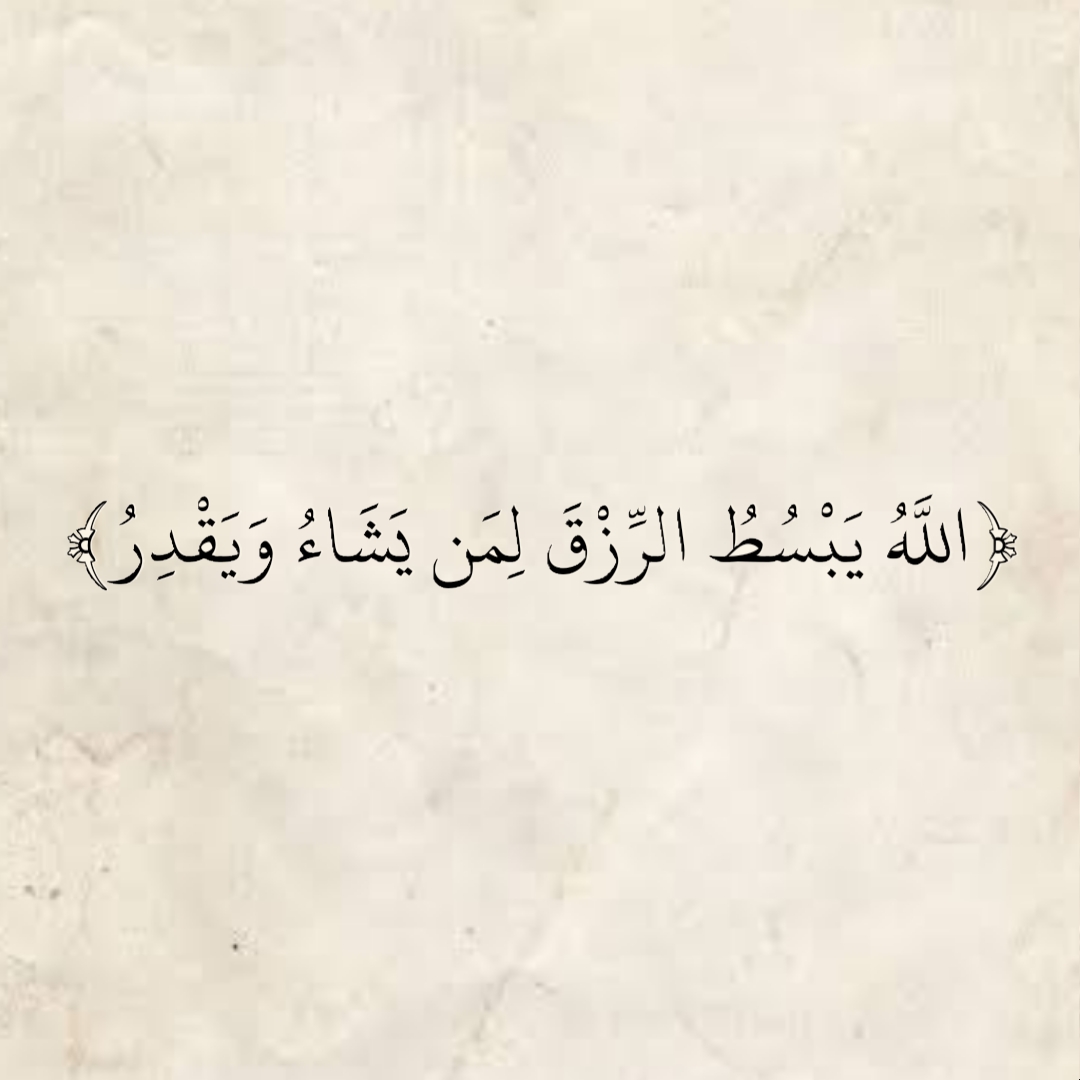 ﴿اللَّهُ يَبْسُطُ الرِّزْقَ لِمَن يَشَاءُ وَيَقْدِرُ﴾